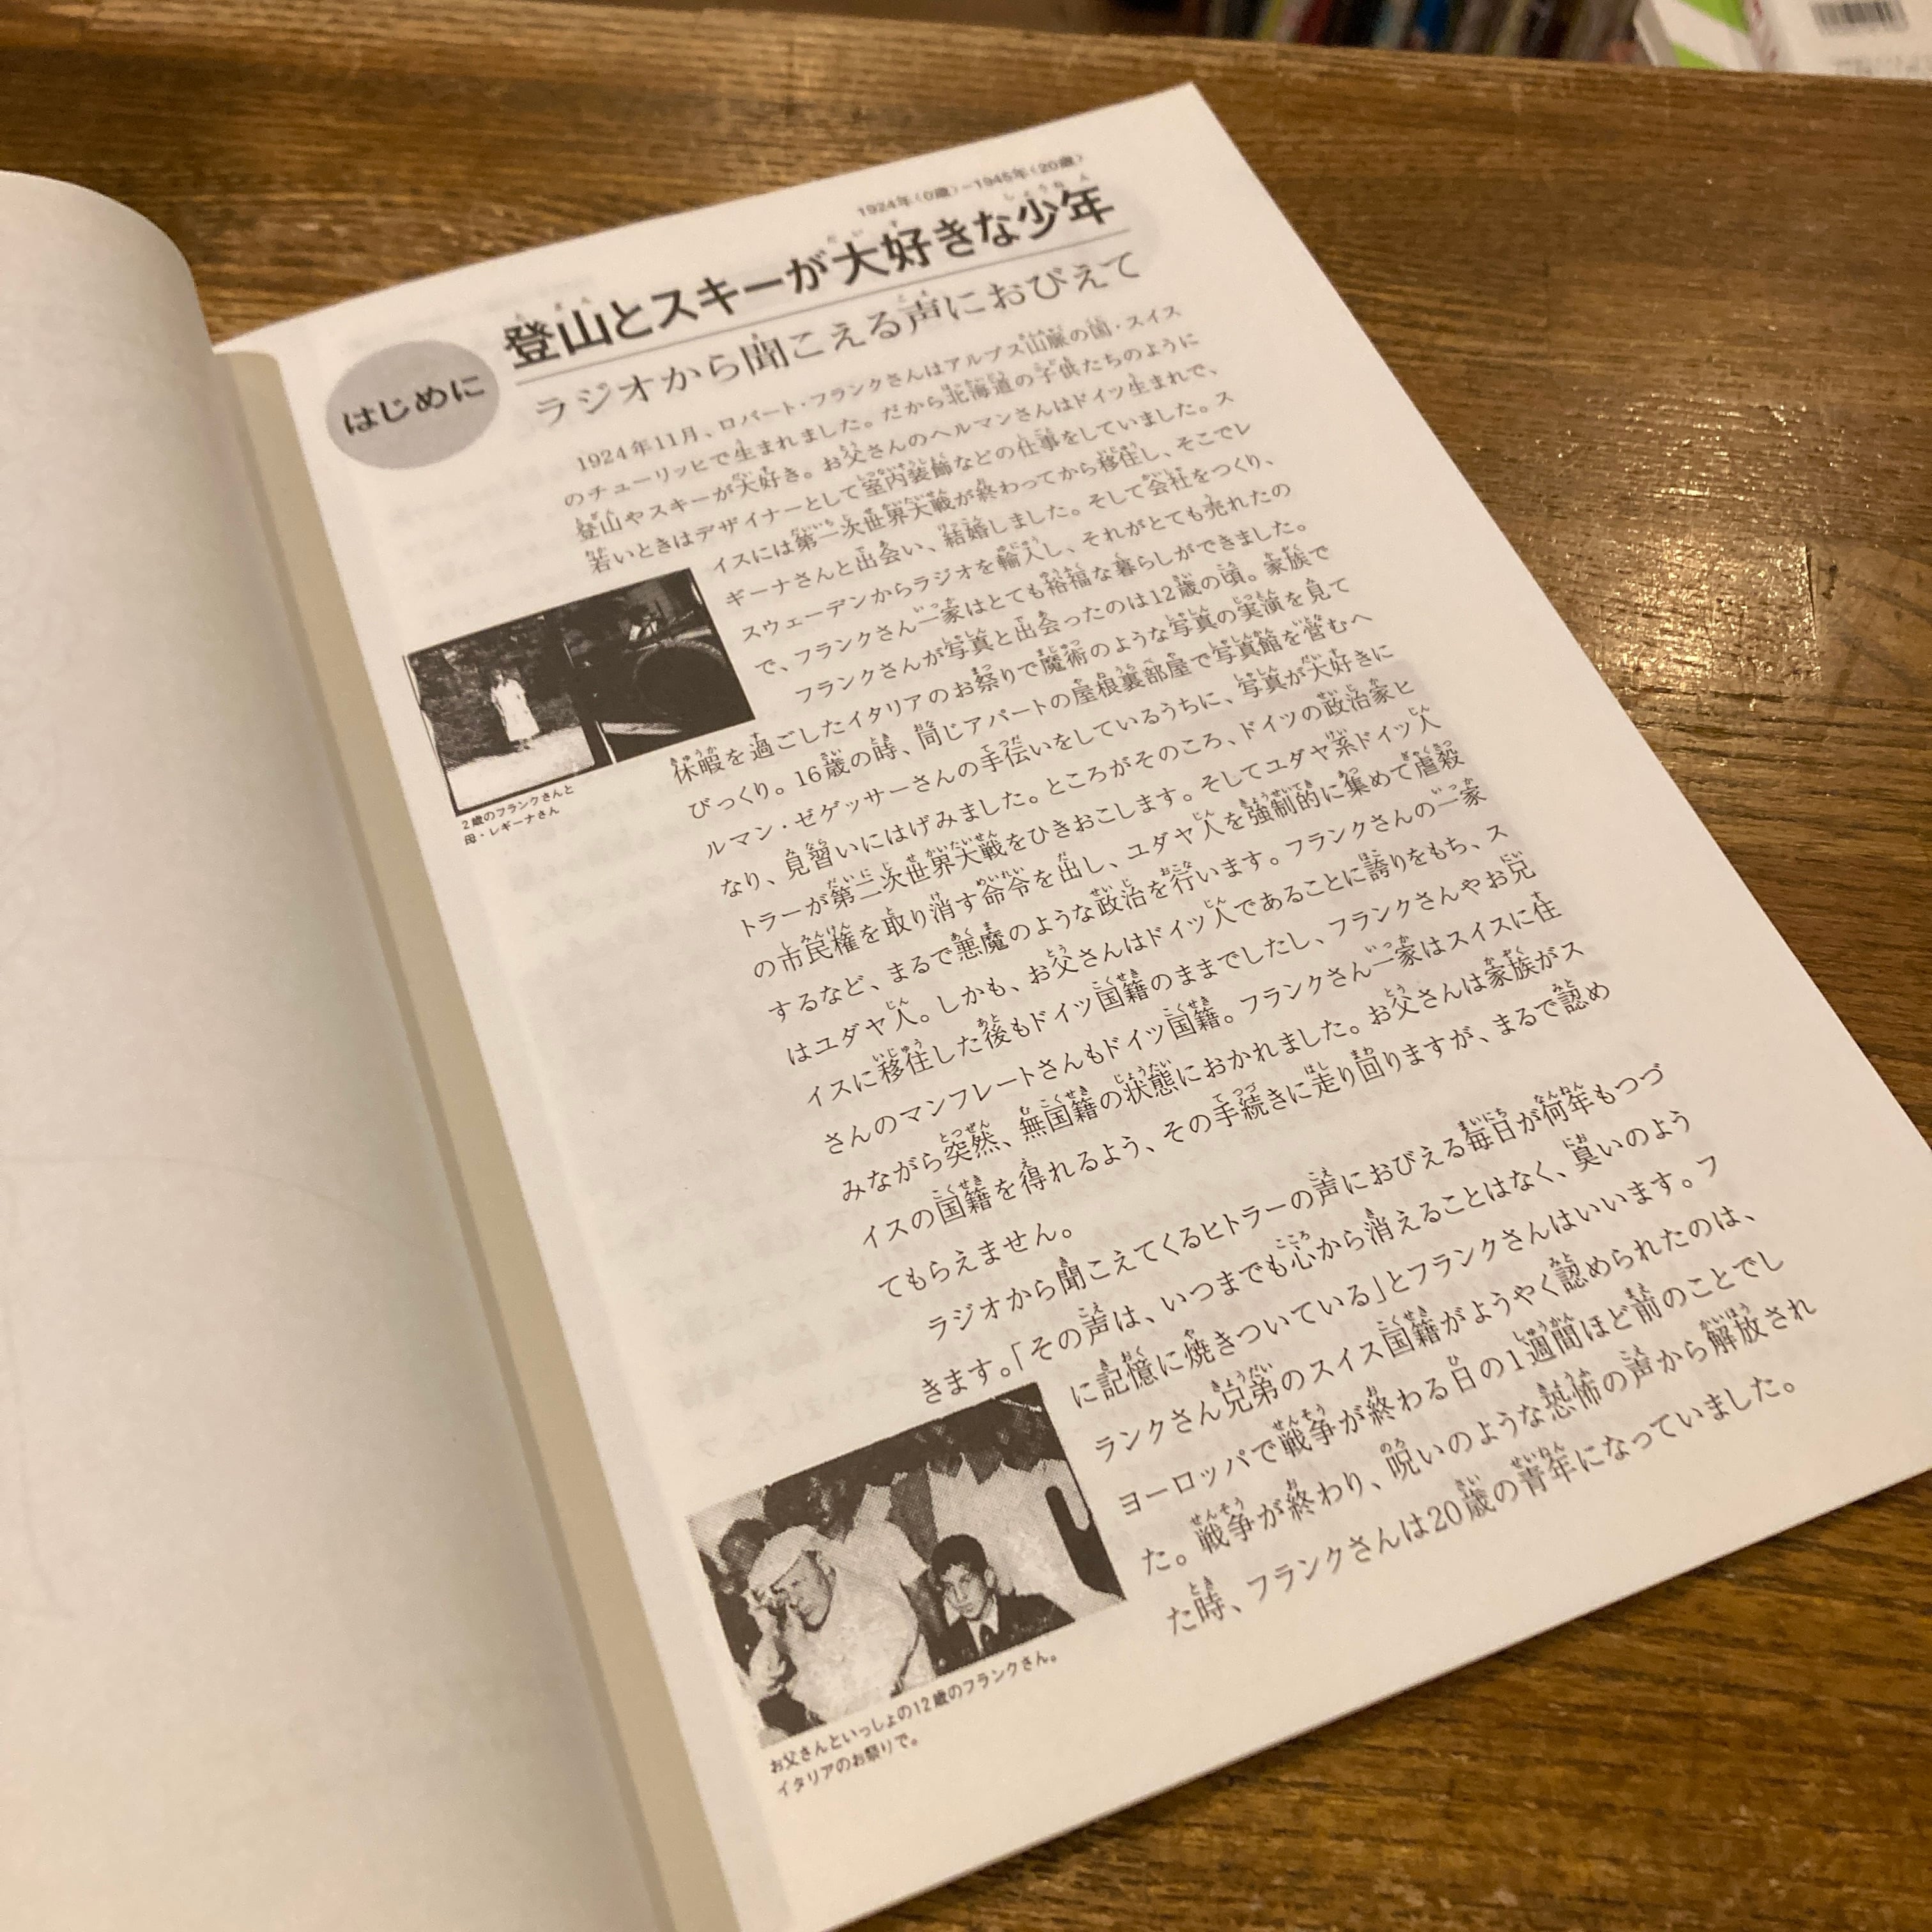 1924年(0歳)−1945年(20歳)
はじめに
登山とスキーが大好きな少年
ラジオから聞こえる声におびえて
1924年11月、ロバート・フランクさんはアルプス山脈の国・スイス
のチューリッヒで生まれました。だから北海道の子供たちのように
登山やスキーが大好き。お父さんのヘルマンさんはドイツ生まれで、
若いときはデザイナーとして室内装飾などの仕事をしていました。ス
イスには第一次世界大戦が終わってから移住し、そこでレ
ギーナさんと出会い、結婚しました。そして会社をつくり、
スウェーデンからラジオを輸入し、それがとても売れたの
で、フランクさん一家はとても裕福な暮らしができました。
フランクさんが写真と出会ったのは12歳の頃。家族で
休暇を過ごしたイタリアのお祭りで魔術のような写真の実演を見て
びっくり。16歳の時、同じアパートの屋根裏部屋で写真館を営むヘ
ルマン・ゼゲッサーさんの手伝いをしているうちに、写真が大好きに
なり、見習いにはげみました。ところがそのころ、ドイツの政治家ヒ
トラーが第二次世界大戦をひきおこします。そしてユダヤ系ドイツ人
の市民権を取り消す命令を出し、ユダヤ人を強制的に集めて虐殺
するなど、まるで悪魔のような政治を行います。フランクさんの一家
はユダヤ人。しかも、お父さんはドイツ人であることに誇りをもち、ス
イスに移住した後もドイツ国籍のままでしたし、フランクさんやお兄
さんのマンフレートさんもドイツ国籍。フランクさん一家はスイスに住
みながら突然、無国籍の状態におかれました。お父さんは家族がス
イスの国籍を得れるよう、その手続きに走り回りますが、まるで認め
てもらえません。
ラジオから聞こえてくるヒトラーの声におびえる毎日が何年もつづ
きます。「その声は、いつまでも心から消えることはなく、臭いのよう
に記憶に焼きついている」とフランクさんはいいます。フ
ランクさん兄弟のスイス国籍がようやく認められたのは、
ヨーロッパで戦争が終わる日の1週間ほど前のことでし
た。戦争が終わり、呪いのような恐怖の声から解放され
た時、フランクさんは20歳の青年になっていました。
2歳のフランクさんと
母・レギーナさん
お父さんといっしょの12歳のフランクさん。
イタリアのお祭りで。